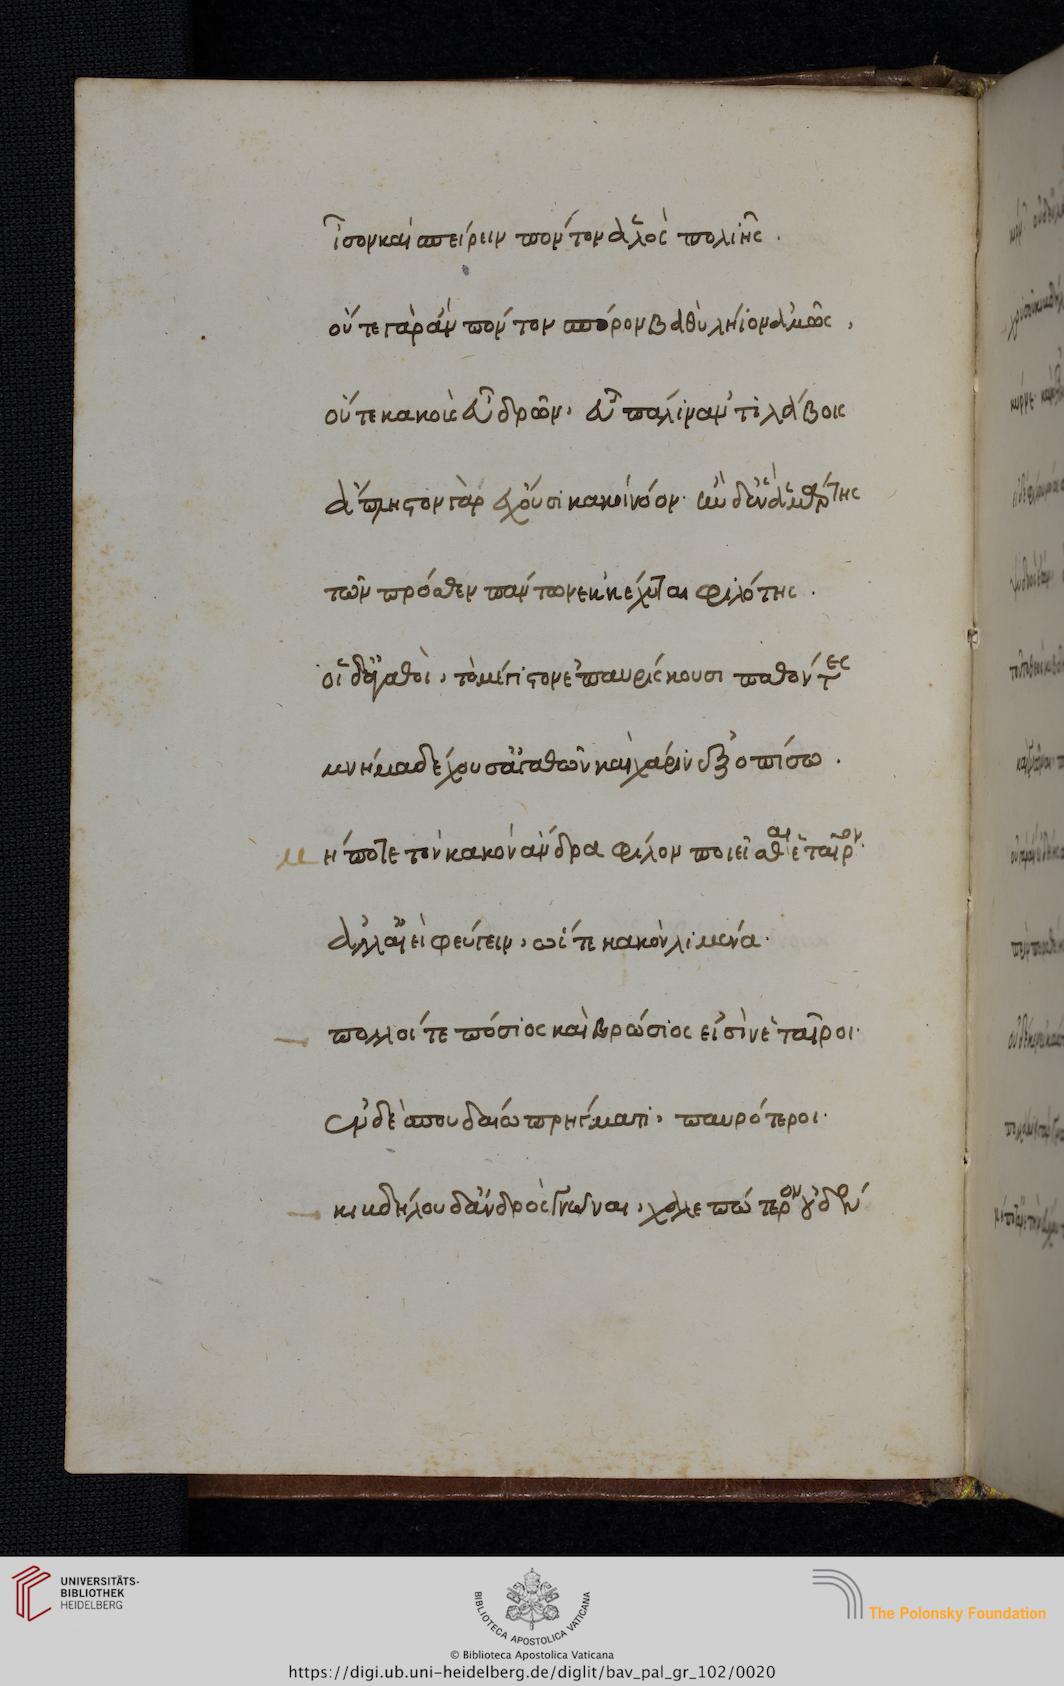 ἶσον καὶ σπείρειν πόντον ἁλὸς πολιῆς .
οὔτε γὰρ ἂν πόντον σπόρον βαθὺ λήϊον ἀμῶς ,
οὔτε κακοὺς εὖ δρῶν, εὖ πάλιν ἀντιλάβοις
ἄπληστον γὰρ ἔχουσι κακοὶ νόον· ἢν δ' ἓν ἁμάρτης
τῶν πρόσθεν πάντων ἐκκέχυται φιλότης .
οἱ δ' ἀγαθοὶ, τὸ μέγιστον ἐπαυρίσκουσι παθόντες
μνῆμα δ' ἔχουσ' ἀγαθῶν καὶ χάριν ἐξοπίσω .
Μήποτε τὸν κακὸν ἄνδρα φίλον ποιεῖσθαι ἑταῖρον·
ἀλλ' αἰεὶ φεύγειν, ὥστε κακὸν λιμένα·
πολλοί τε πόσιος καὶ βρώσιος εἰσὶν ἑταῖροι·
ἐν δὲ σπουδαίω πρήγματι, παυρότεροι·
κικδήλου δ' ἀνδρὸς γνῶναι, χαλεπώτερον οὐδέν
UNIVERSITÄTS-
BIBLIOTHEK
HEIDELBERG
BIBLIOTECA APOSTOLICA VATICANA
The Polonsky Foundation
© Biblioteca Apostolica Vaticana
https://digi.ub.uni-heidelberg.de/diglit/bav_pal_gr_102/0020